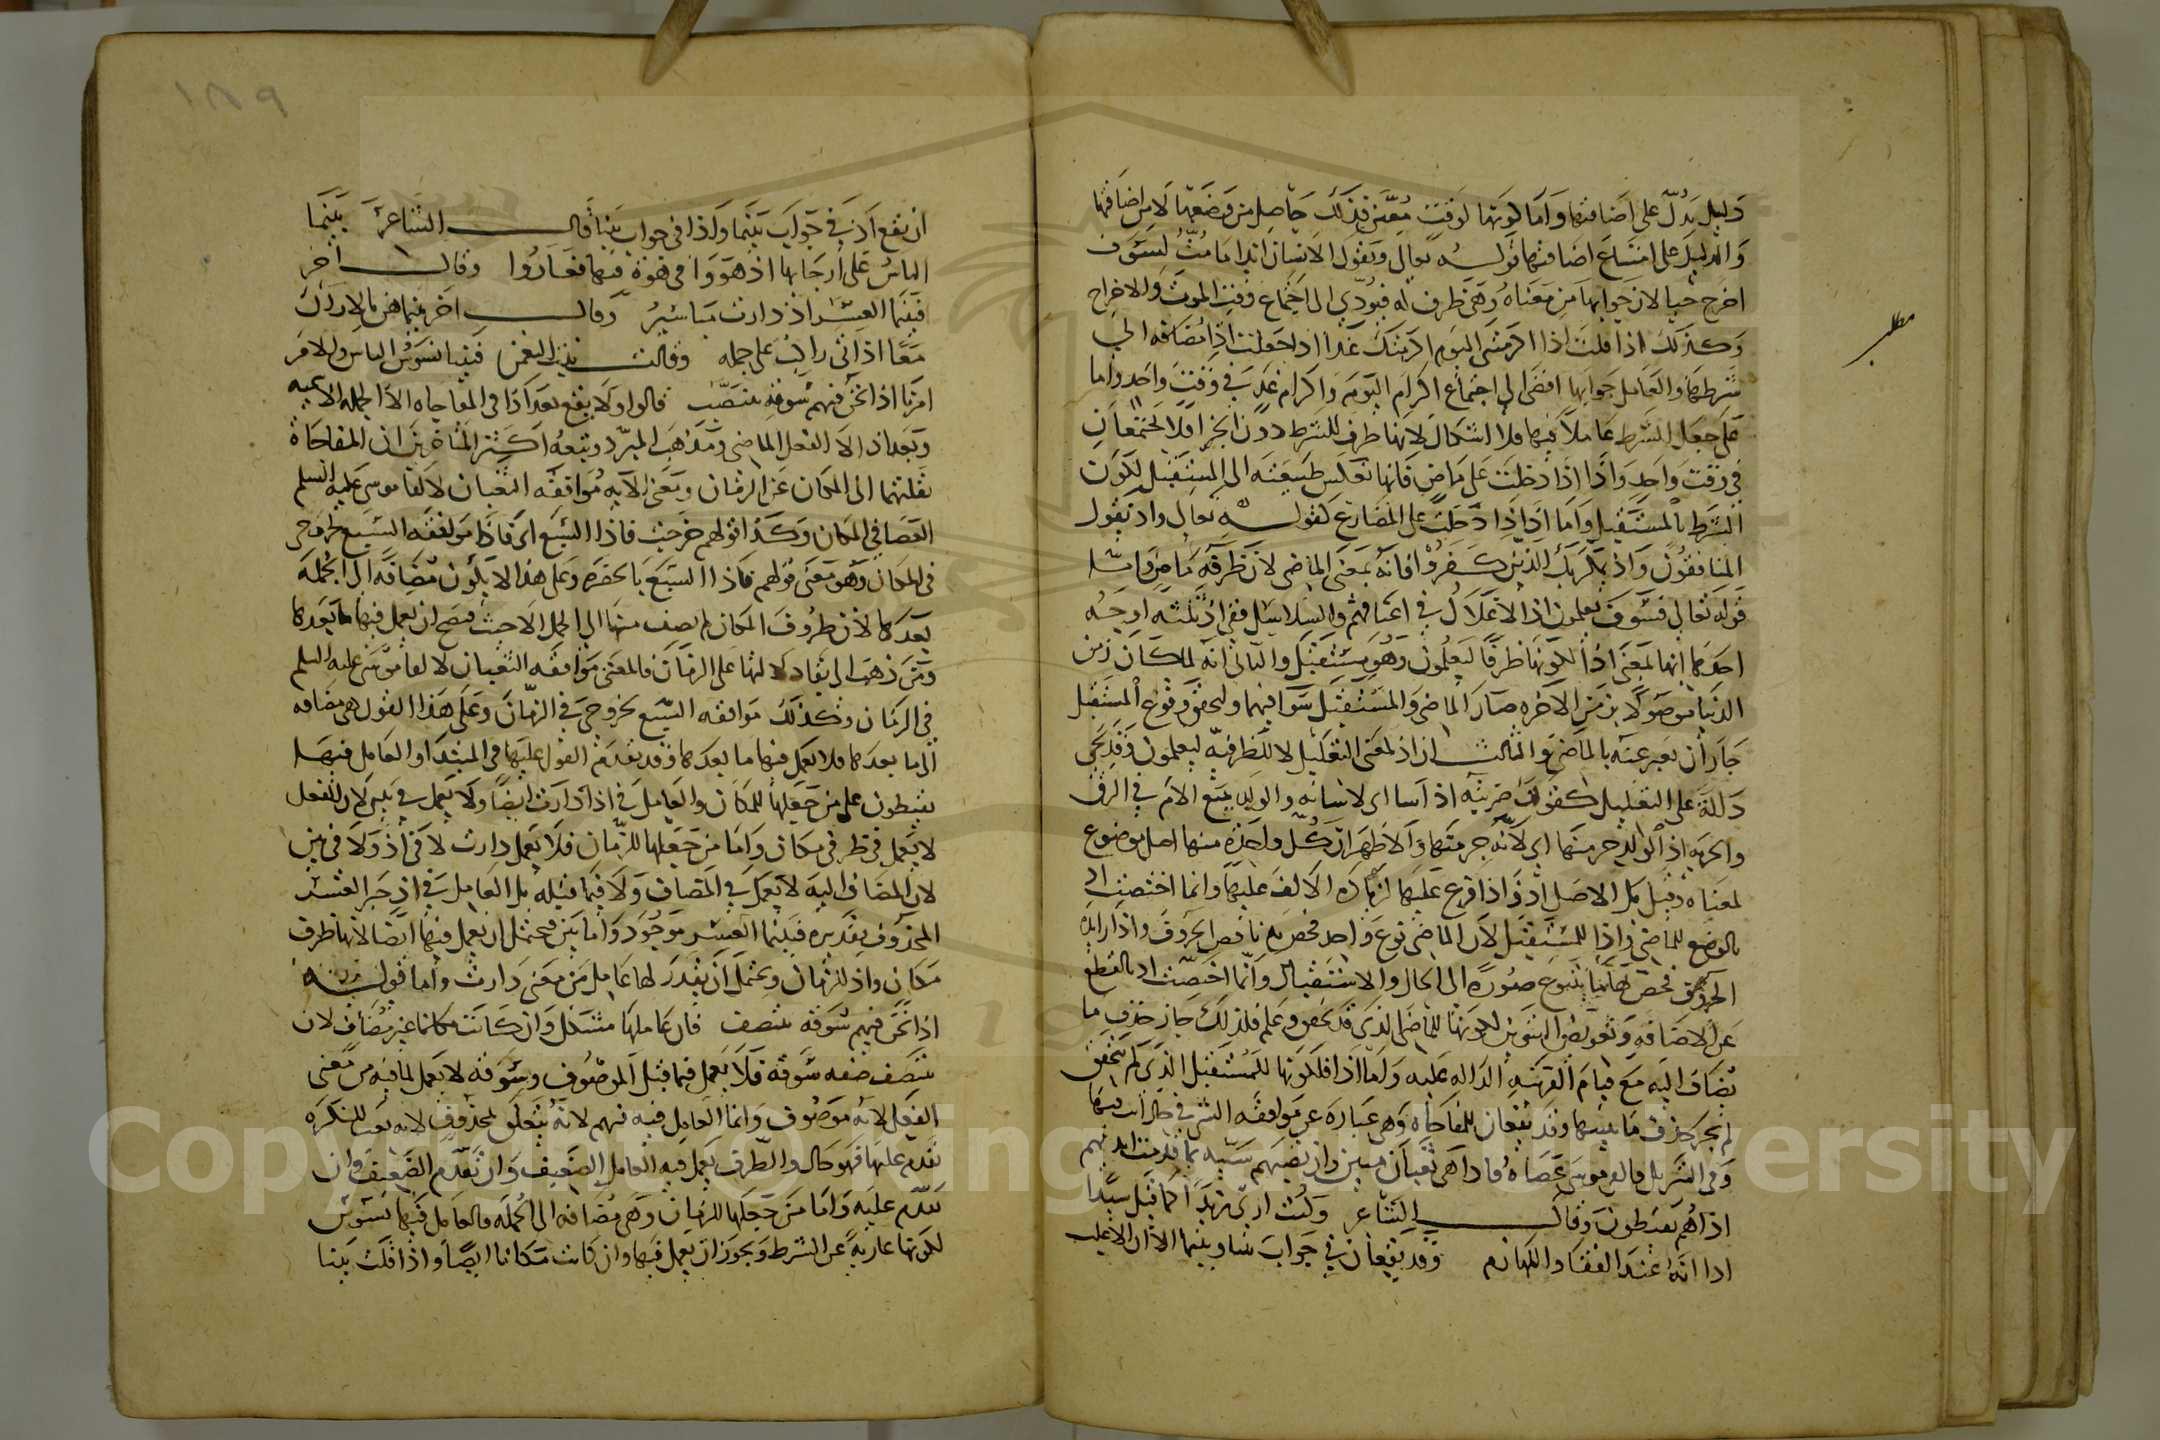 دليل يدل على اضافتها واما كونها لوقت معين فذلك حاصل من وضعها لا من اضافتها
والدليل على امتناع اضافتها قوله تعالى ويقول الانسان ائذا ما مت لسوف
اخرج حيا لان جوابها من معناه وهي ظرف له فيودي الى اجتماع وقت الموت والاخراج
وكذلك اذا قلت اذا اكرمتني اليوم اكرمتك غدا اذا جعلت اذا مضافة الى
شرطها والعامل جوابها افضى الى اجتماع اكرام اليوم واكرام غد في وقت واحد واما
على جعل الشرط عاملا فيها فلا اشكال لانها ظرف للشرط دون الجزا فلا يجتمعان
في وقت واحد واذا اذا دخلت على ماض فانها تعكس طبيعته الى المستقبل لكون
الشرط بالمستقبل واما اذ اذا دخلت على المضارع كقوله تعالى واذ يقول
المنافقون واذ يمكر بك الذين كفروا فانه بمعنى الماضي لان ظرفه ماض فاما
قوله تعالى فسوف يعلمون اذ الاغلال في اعناقهم والسلاسل ففي اذ ثلثة اوجه
احدها انها بمعنى اذا لكونها ظرفا ليعلمون وهو مستقبل والثاني انه لما كان زمن
الدنيا موصولا بزمن الاخرة صار الماضي والمستقبل سوا فيهما ولتحقق وقوع المستقبل
جاز ان يعبر عنه بالماضي والثالث ان اذ لمعنى التعليل لا للظرفية ليعلمون وقد تجي
دلالة على التعليل كقولك ضربته اذ اسا اي لاساته والولد يتبع الام في الرق
والحرية اذ الولد جز منها اي لانه جز منها والاظهر ان كل واحدة منها اصل موضوع
لمعناه وقيل بل الاصل اذ واذا فرع عليها لزيادة الالف عليها وانما اختصت اذ
بالوضع للماضي واذا للمستقبل لان الماضي نوع واحد فخص به ناقص الحروف واذا زايدة
الحروف فخص بها ما يتنوع صورة الى الحال والاستقبال وانما اختصت اذ بالقطع
عن الاضافة وتعويض التنوين لكونها للماضي الذي قد تحقق وعلم فلذلك جاز حذف ما
يضاف اليه مع قيام القرينة الدالة عليه واما اذا فلكونها للمستقبل الذي لم يتحقق
لم يجز حذف ما يبينها وقد يقعان للمفاجاة وهي عبارة عن موافقة الشي في حال انت فيها
وفي التنزيل فالقى موسى عصاه فاذا هي ثعبان مبين وان تصبهم سيئة بما قدمت ايديهم
اذا هم يقنطون وقال الشاعر وكنت ارى زيدا كما قيل سيدا
اذا انه عبد القفا واللهازم وقد يقعان في جواب بينا وبينما الا ان الاغلب
مطلب
١٨٩
ان يقع اذ في جواب بينما واذا في جواب بينا قال الشاعر بينما
الناس على ارجائها اذ هووا في هوة فيها فغاروا وقال اخر
فبينما العسر اذ دارت مياسير وقال اخر بينما هن بالاراك
معا اذ اتى راكب على جمله وقالت بنت النعمن فبينا نسوس الناس والامر
امرنا اذا نحن فيهم سوقة نتنصف قالوا ولا يقع بعد اذا في المفاجاه الا الجملة الاسمية
وبعد اذ الا الفعل الماضي ومذهب المبرد ويتبعه اكثر المتاخرين ان المفاجاة
نقلتهما الى المكان عن الزمان ومعنى الاية موافقة الثعبان لالقا موسى عليه السلم
العصا في المكان وكذا قولهم خرجت فاذا السبع اي فاذا موافقة السبع لخروجي
في المكان وهو معنى قولهم فاذا السبع بالحضرة وعلى هذا لا يكون مضافة الى الجملة
بعدها لان ظروف المكان لم يضف منها الى الجمل الا حيث فصح ان يعمل فيها ما بعدها
ومن ذهب الى بقاء دلالتها على الزمان فالمعنى موافقة الثعبان لالقا موسى عليه السلم
في الزمان وكذلك موافقة السبع بخروجي في الزمان وعلى هذا القول هي مضافة
الى ما بعدها فلا يعمل فيها ما بعدها وقد تقدم القول عليها في المبتدا والعامل فيها
يقنطون على من جعلها للمكان والعامل في اذا دارت ايضا ولا يعمل في بين لان الفعل
لا يعمل في ظرفي مكان واما من جعلها للزمان فلا يعمل دارت لا في اذ ولا في بين
لان المضاف اليه لا يعمل في المضاف ولا فيما قبله بل العامل في اذ خبر العسر
المحذوف بقديره فبينما العسر موجود واما بين فيحتمل ان يعمل فيها ايضا لانها ظرف
مكان واذ للزمان ويحتمل ان يقدر لها عامل من معنى دارت واما قوله
اذا نحن فيهم سوقة نتنصف فان عاملها مشكل وان كانت مكانا غير مضاف لان
نتنصف صفة سوقة فلا يعمل فيما قبل الموصوف وسوقة لا يعمل لما فيه من معنى
الفعل لانه موصوف وانما العامل فيه فيهم لانه يتعلق بمحذوف لانه نعت للنكرة
تقدم عليها فهو حال والظرف يعمل فيه العامل الضعيف وان تقدم الضعيف وان
تقدم عليه واما من جعلها للزمان وهي مضافة الى الجملة فالعامل فيها نسوس
لكونها عارية عن الشرط ويجوز ان يعمل فيها وان كانت مكانا ايضا واذا قلت بينا
Copyright © King Saud University